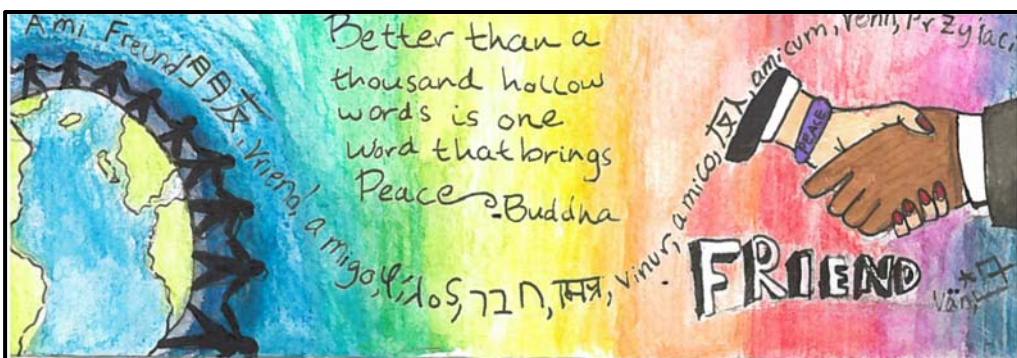 Ami Freund 朋友, Vriend, amigo, φίλος, חבר, मित्र, Vinur, amico, 友人, amicum, venn,
Better than a
thousand hollow
words is one
word that brings
Peace
-Buddha
PEACE
FRIEND
Vän,